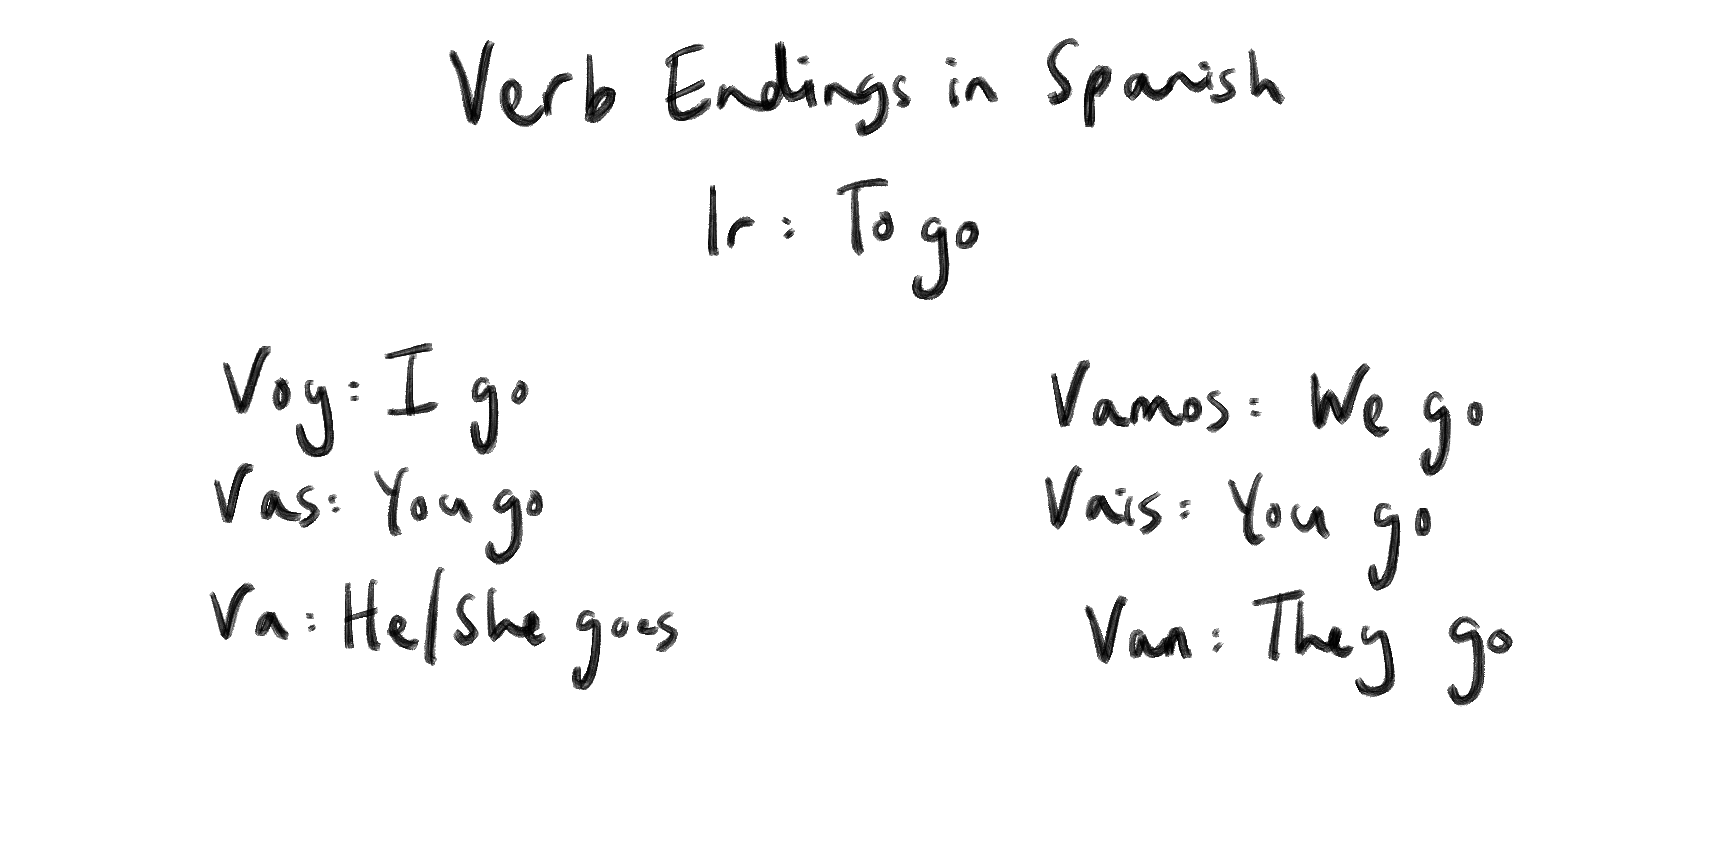 Verb Endings in Spanish
Ir: To go
Voy: I go
Vas: You go
Va: He/She goes
Vamos: We go
Vais: You go
Van: They go